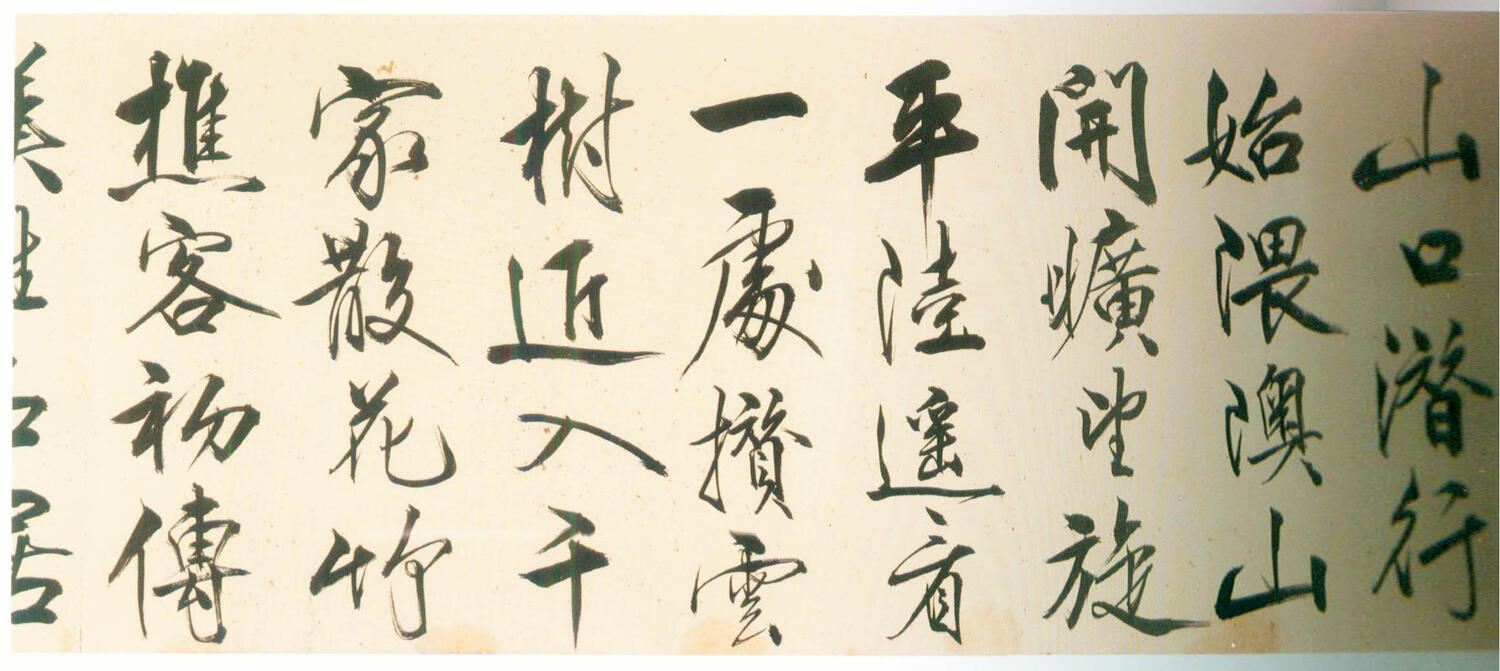 山口潛行
始隈隩山
開曠望旋
平陸遙看
一處攢雲
樹近入千
家散花竹
樵客初傳
漢姓名居